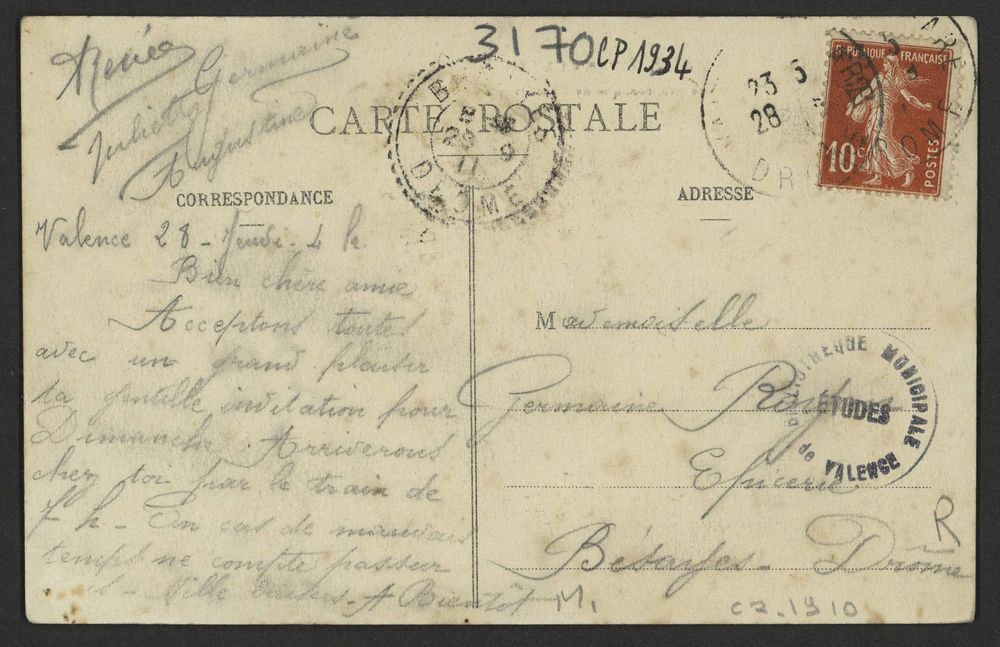 3170 CP 1934
Renée
Germaine
Juliette
Augustine
CARTE POSTALE
CORRESPONDANCE
Valence 28 - Jeudi - 4 h.
Bien chère amie
Acceptons toutes
avec un grand plaisir
ta gentille invitation pour
Dimanche. Arriverons
chez toi par le train de
7 h - En cas de mauvais
temps ne compte pas sur
Mille baisers - A Bientôt M.
DROME
23 5
28
DROME
REPUBLIQUE FRANÇAISE
10c
POSTES
ADRESSE
Mademoiselle
Germaine
Epicerie
Bésayes - Drôme
BIBLIOTHEQUE MUNICIPALE
ETUDES
de VALENCE
R
1910